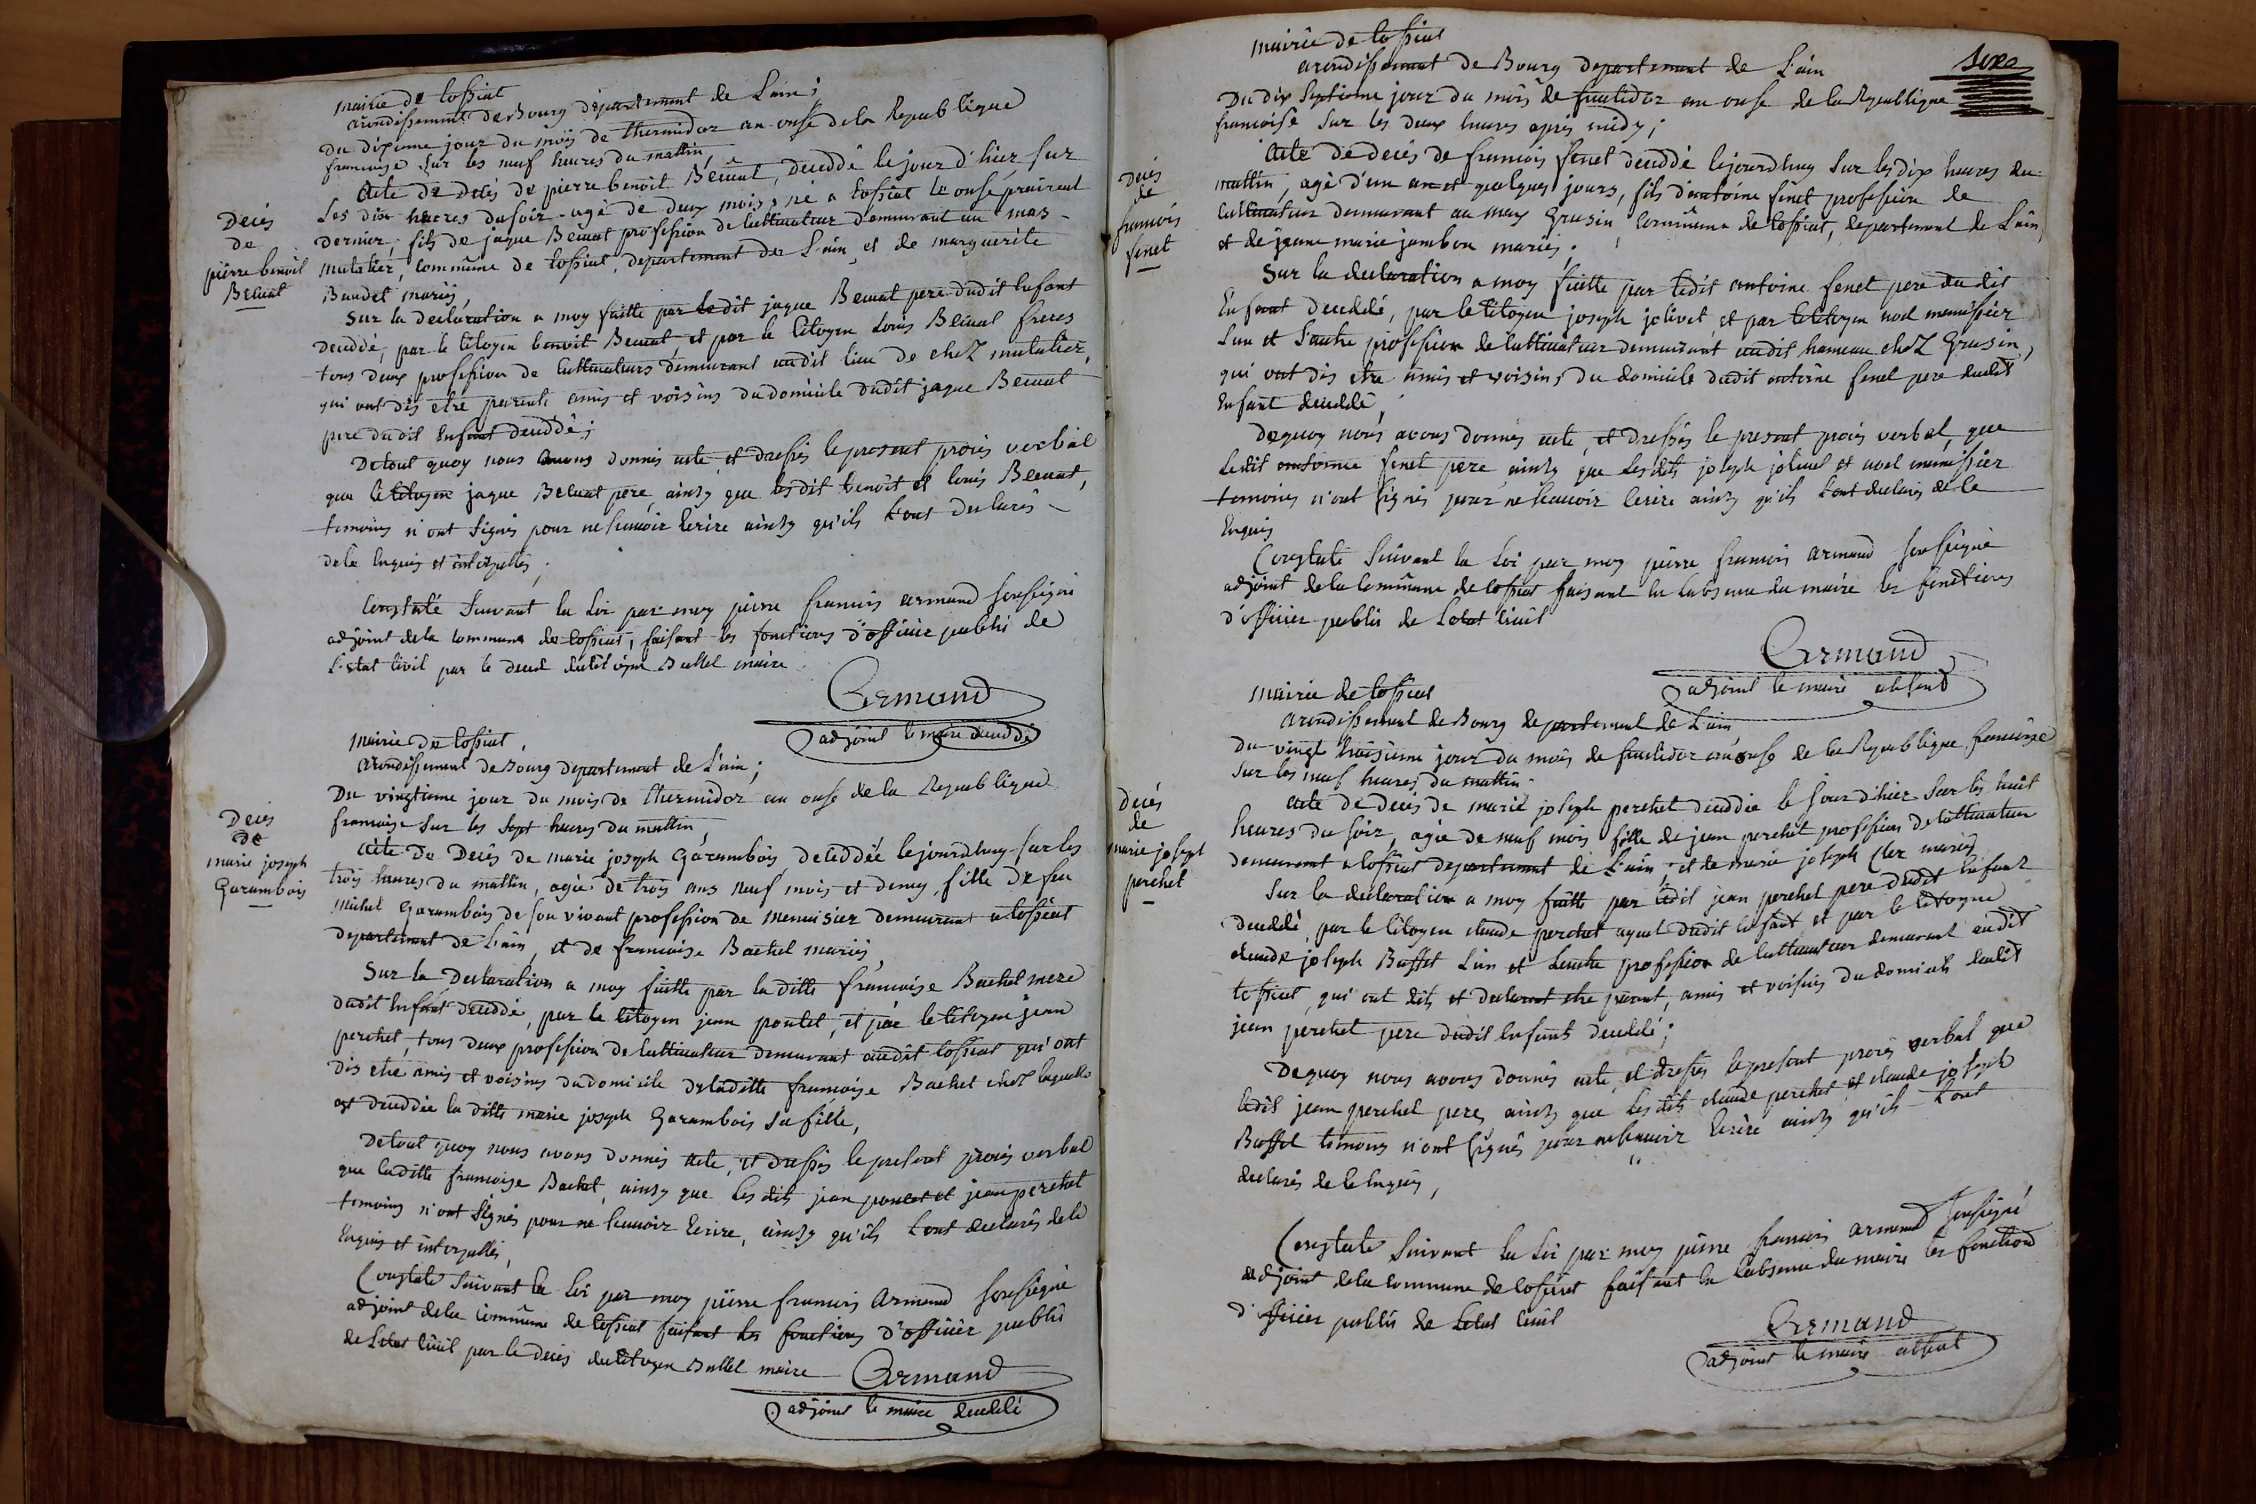 mairie de Cossiat
arondissement de Bourg departement de Lain;
Du dixieme jour du mois de thermidor an onse de la Republique
francoise sur les neuf heures du mattin,
Acte de Decés de pierre benoit Beluat, deceddé le jour d'hier sur
Les dix heures du soir agé de deux mois, né a Cossiat le onse prairial
dernier, fils de jaque Beluat profession de Cultivateur demeurant au mas
mutalier, Commune de Cossiat, departement de L'ain, et de marguerite
Baudet mariés,
Sur la declaration a moy faitte par ledit jaque Beluat pere dudit Enfant
deceddé, par le Citoyen benoit Beluat et par le Citoyen Louis Beluat freres
tous deux profession de Cultivateurs demeurant audit lieu de chez mutalier,
qui ont dis etre parents amis et voisins du domicile dudit jaque Beluat
pere dudit Enfant deceddé;
De tout quoy nous avons donnés acte, et dressés le present procés verbal
que le Citoyen jaque Beluat pere, ainsy que les dit benoit et louis Beluat,
temoins n'ont signés pour ne scavoir Ecrire ainsy qu'ils L'ont declarés
de ce Enquis et interpellés,
Constaté Suivant la Loi par moy pierre francois armand soussigné
adjoint de la commune de Cossiat, faisant les fonctions d'officier public de
L'etat Civil par le decés du Citoyen Bullet maire
Armand
adjoint le maire deceddé
Decés
de
pierre benoit
Beluat
mairie de Cossiat,
Arondissement de Bourg departement de L'ain;
Du vingtieme jour du mois de thermidor an onse de la Republique
francoise sur les sept heures du mattin,
Acte de Decés de marie joseph Garambois, deceddée le jourdhuy sur les
trois heures du mattin, agée de trois ans neuf mois et demy, fille de feu
michel Garambois de son vivant profession de menuisier demeurant a Cossiat
departement de L'ain, et de francoise Bachet mariés,
Sur la Declaration a moy faitte par la ditte francoise Bachet mere
dudit Enfant deceddé, par le Citoyen jean poutet, et par le Citoyen jean
perchet, tous deux profession de Cultivateur demeurant audit Cossiat qui ont
dis etre amis et voisins du domicile de laditte francoise Bachet chez laquelle
est deceddée la ditte marie joseph Garambois sa fille,
De tout quoy nous avons donnés acte, et dressés le present procés verbal
que laditte francoise Bachet, ainsy que les dits jean poutet et jean perchet
temoins n'ont signés pour ne scavoir Ecrire, ainsy qu'ils L'ont declarés de ce
Enquis et interpellés,
Constaté Suivant la Loi par moy pierre francois Armand soussigné
adjoint de la commune de Cossiat faisant les fonctions d'officier public
de L'etat Civil par le decés du Citoyen Bullet maire
Armand
adjoint le maire deceddé
Decés
de
marie joseph
Garambois
mairie de Cossiat
arondissement de Bourg departement de L'ain
Du dix Septieme jour du mois de fructidor an onse de la Republique
francoise sur les deux heures aprés midy;
Acte de decés de francois fenet deceddé le jourdhuy sur les dix heures du
mattin, agé d'un an et quelques jours, fils d'antoine fenet profession de
Cultivateur demeurant au mas Grusin, Commune de Cossiat, departement de L'ain,
et de jeanne marie jambon mariés,
Sur la declaration a moy faitte par ledit antoine fenet pere dudit
Enfant deceddé, par le Citoyen joseph jolivet et par le Citoyen noel menissier
L'un et L'autre profession de Cultivateur demeurant audit hameau chez Grusin,
qui ont dis etre amis et voisins du domicile dudit antoine fenet pere dudit
Enfant deceddé,
De quoy nous avons donnés acte, et dressés le present procés verbal, que
ledit antoine fenet pere ainsy que lesdits joseph jolivet et noel menissier
temoins n'ont signés pour ne scavoir Ecrire ainsy qu'ils L'ont declarés de ce
Enquis
Constaté Suivant la Loi par moy pierre francois armand soussigné
adjoint de la Commune de Cossiat faisant en L'absence du maire les fonctions
d'officier public de L'etat Civil
Armand
adjoint le maire absent
Decés
de
francois
fenet
mairie de Cossiat
arondissement de Bourg departement de L'ain
Du vingt troisieme jour du mois de fructidor an onse de la Republique francoise
Sur les neuf heures du mattin
Acte de decés de marie joseph perchet deceddée le jour d'hier sur les huit
heures du soir, agée de neuf mois fille de jean perchet profession de Cultivateur
demeurant a Cossiat departement de L'ain, et de marie joseph Cler mariés
Sur la declaration a moy faitte par ledit jean perchet pere dudit Enfant
deceddé, par le Citoyen claude perchet ayeul dudit Enfant et par le Citoyen
claude joseph Buffet L'un et L'autre profession de Cultivateur demeurant audit
Cossiat, qui ont dits et declarent etre parent, amis et voisins du domicile dudit
jean perchet pere dudit Enfants deceddé;
De quoy nous avons donnés acte, et dressés le present procés verbal que
ledit jean perchet pere, ainsy que les dits claude perchet et claude joseph
Buffet temoins n'ont signés pour ne scavoir Ecrire ainsy qu'ils L'ont
declarés de ce Enquis,
Constaté Suivant la Loi par moy pierre francois armand soussigné
adjoint de la commune de Cossiat faisant en L'absence du maire les fonctions
d'officier public de L'etat Civil
Armand
adjoint le maire absent
decés
de
marie joseph
perchet